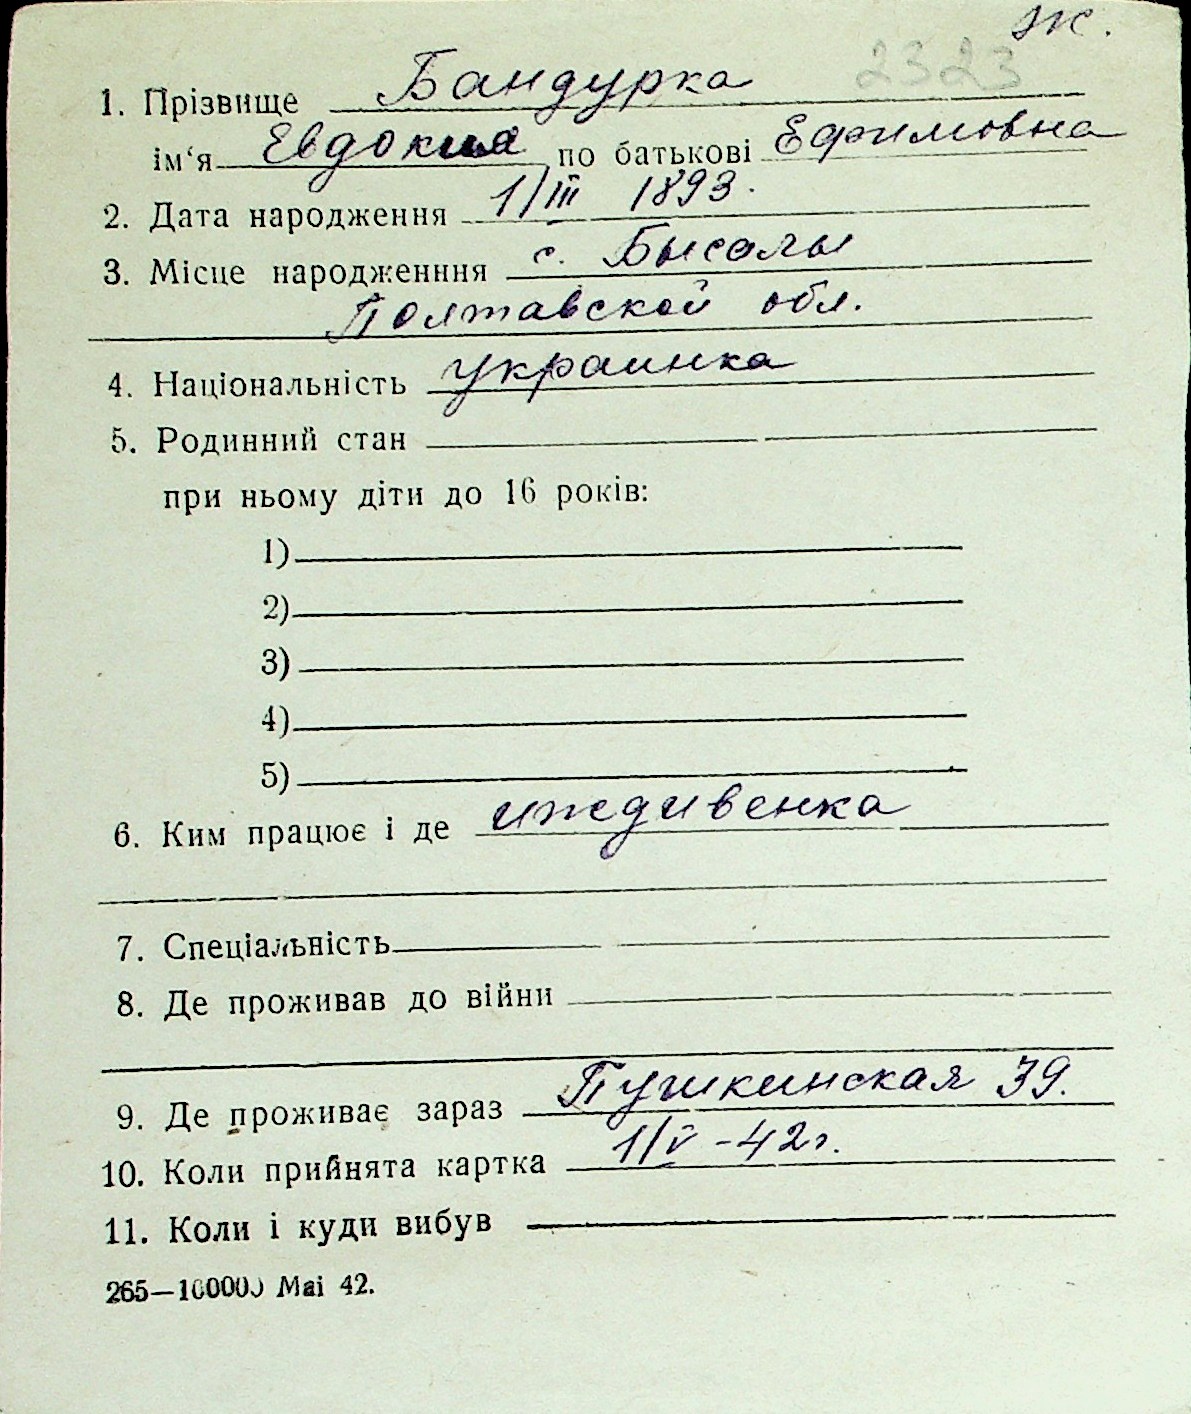 Ж.
2323
1. Прізвище Бандурка
ім‘я Евдокия по батькові Ефимовна
2. Дата народження 1/III 1893.
3. Місце народженння с. Бысалы
Полтавской обл.
4. Національність украинка
5. Родинний стан
при ньому діти до 16 років:
1)
2)
3)
4)
5)
6. Ким працює і де иждивенка
7. Спеціальність
8. Де проживав до війни
9. Де проживає зараз Пушкинская 39.
10. Коли прийнята картка 1/V - 42 г.
11. Коли і куди вибув
265—100000 Mai 42.